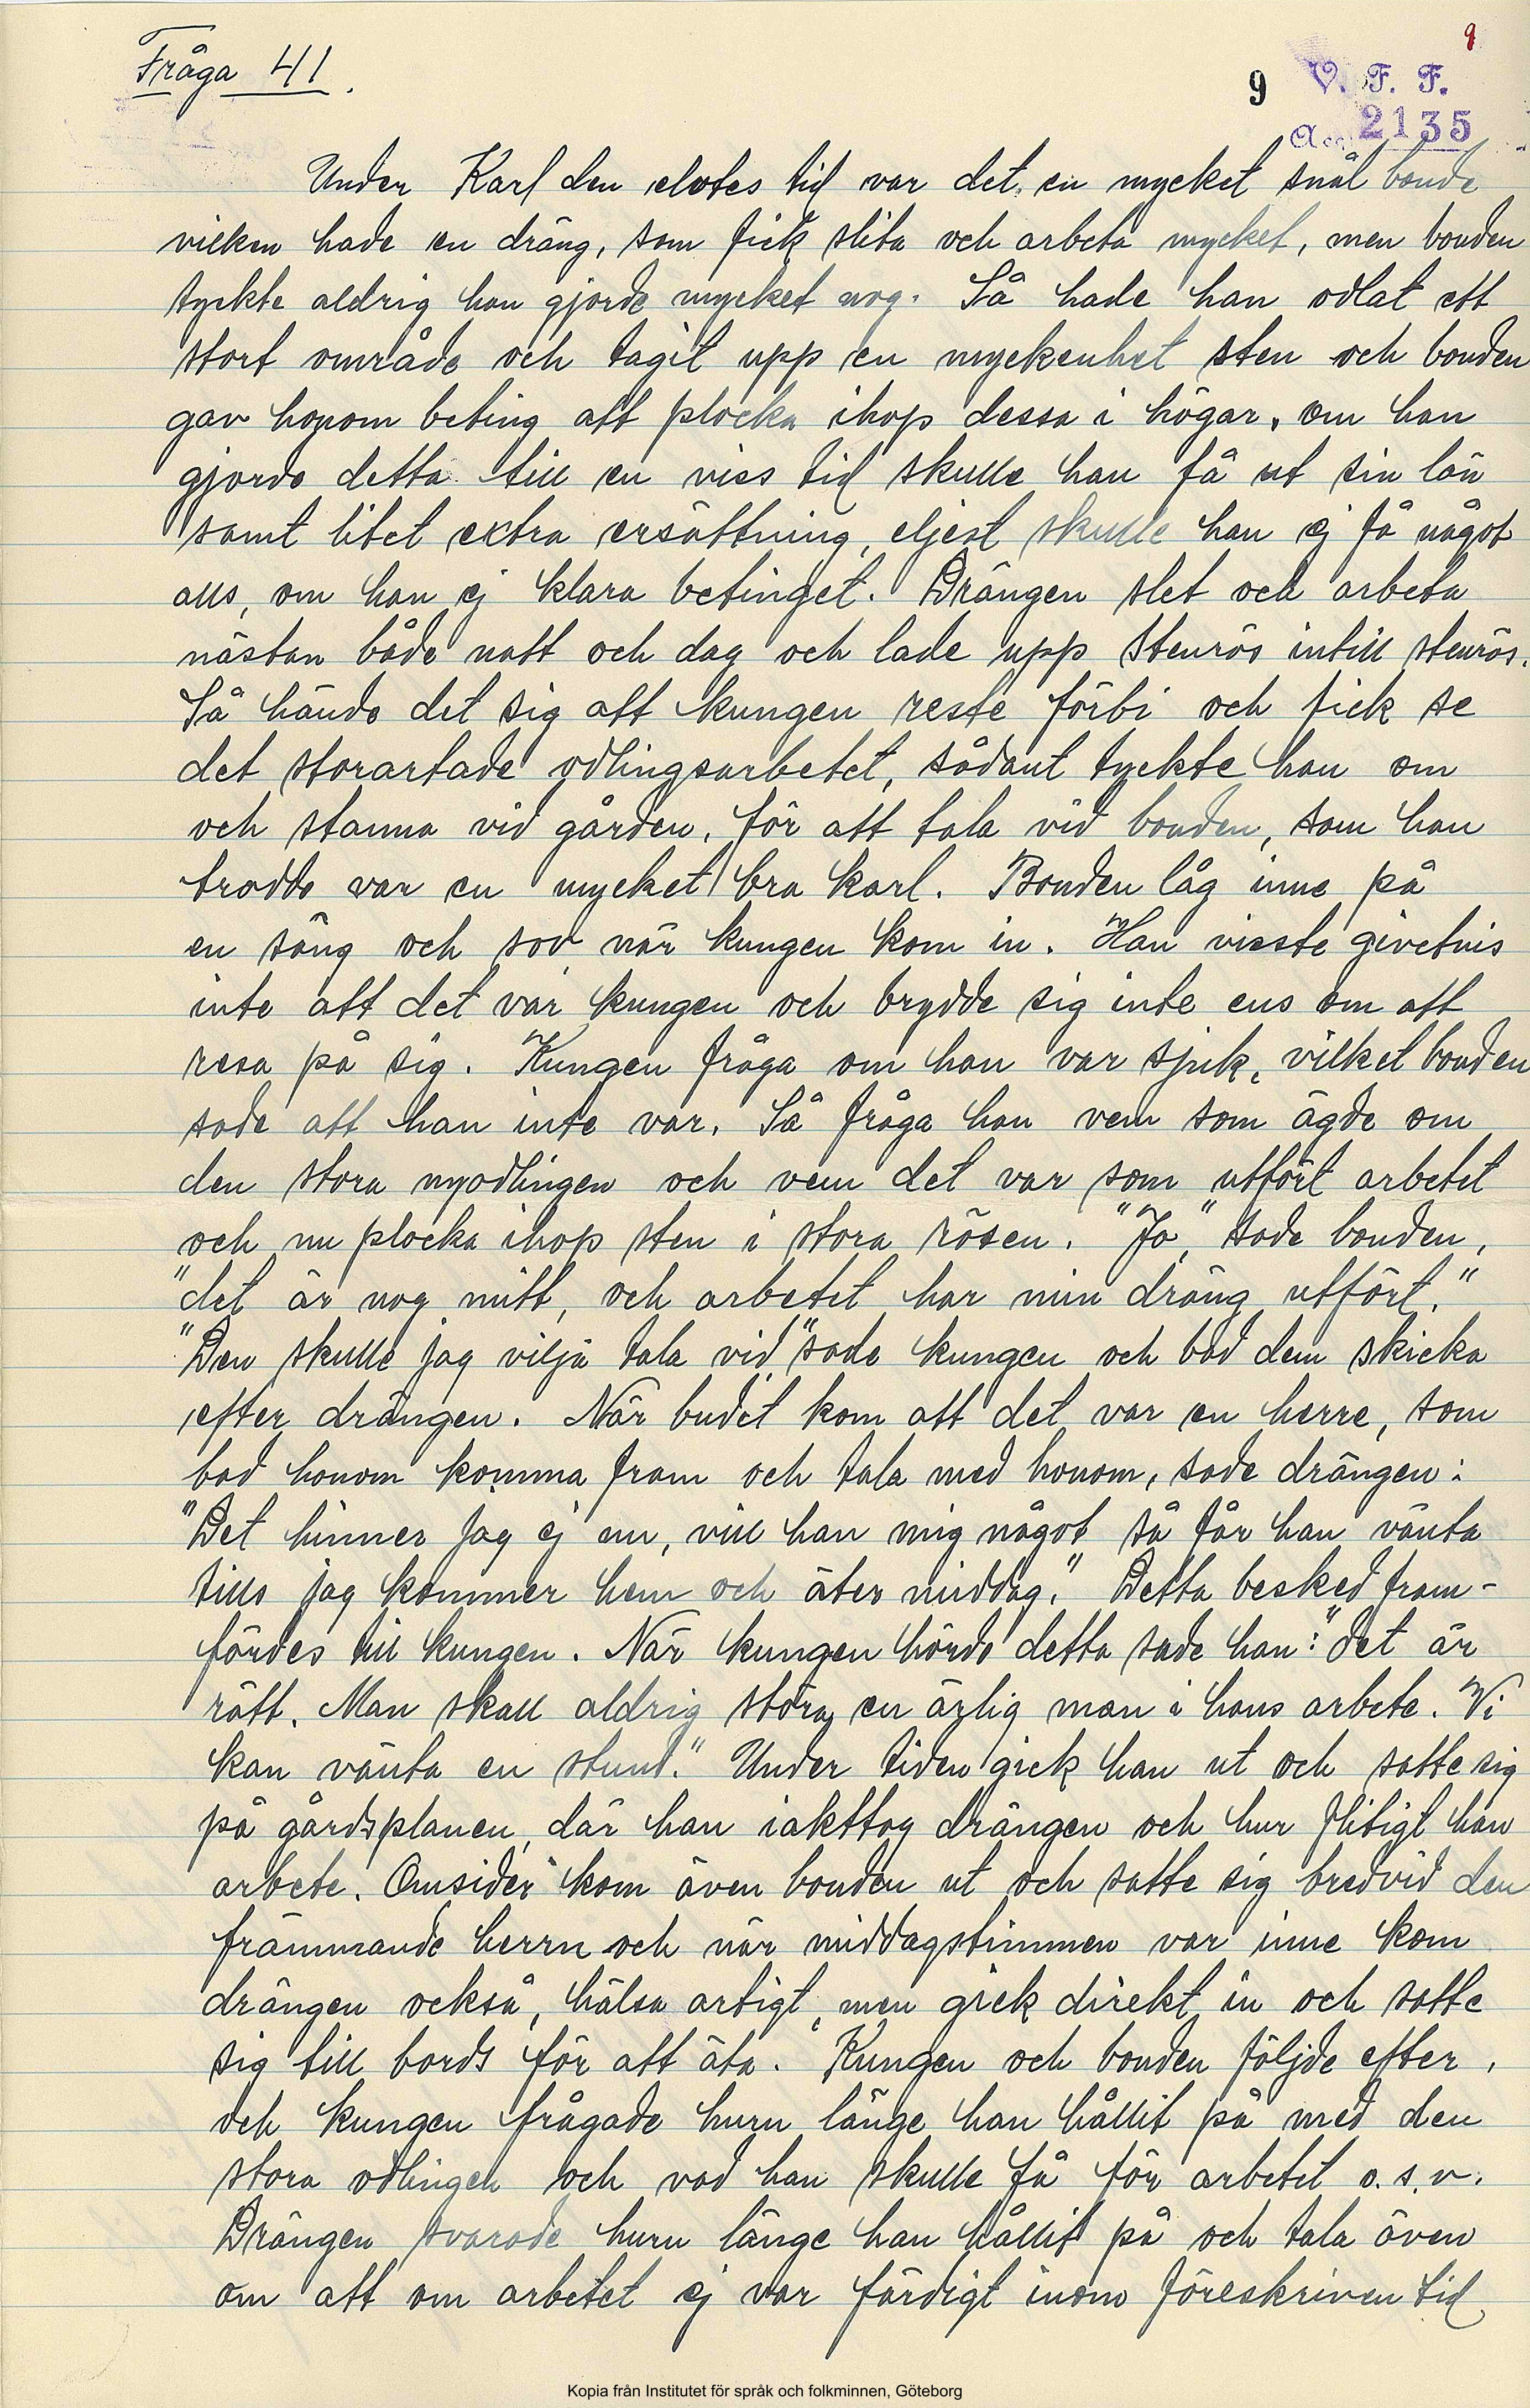 Fråga 41.
9
9 V. F. F.
Acc. 2135
Under Karl den elvtes tid var det en mycket snål bonde
vilken hade en dräng, som fick slita och arbeta mycket, men bonden
tyckte aldrig han gjorde mycket nog. Så hade han odlat ett
stort område och tagit upp en myckenhet sten och bonden
gav honom beting att plocka ihop dessa i högar, om han
gjorde detta till en viss tid skulle han få ut sin lön
samt litet extra ersättning, eljest skulle han ej få något
alls, om han ej klara betinget. Drängen slet och arbeta
nästan både natt och dag och lade upp stenrös intill stenrös.
Så hände det sig att kungen reste förbi och fick se
det storartade odlingsarbetet, sådant tyckte han om
och stanna vid gården, för att tala vid bonden, som han
trodde var en mycket bra karl. Bonden låg inne på
en säng och sov när kungen kom in. Han visste givetvis
inte att det var kungen och brydde sig inte ens om att
resa på sig. Kungen fråga om han var sjuk, vilket bonden
sade att han inte var. Så fråga han vem som ägde om
den stora nyodlingen och vem det var som utfört arbetet
och nu plocka ihop sten i stora rösen. "Jo," sade bonden,
"det är nog mitt, och arbetet har min dräng utfört."
"Den skulle jag vilja tala vid" sade kungen och bad dem skicka
efter drängen. När budet kom att det var en herre, som
bad honom komma fram och tala med honom, sade drängen:
"Det hinner jag ej nu, vill han mig något så får han vänta
tills jag kommer hem och äter middag." Detta besked fram-
fördes till kungen. När kungen hörde detta sade han: "det är
rätt. Man skall aldrig störa en ärlig man i hans arbete. Vi
kan vänta en stund." Under tiden gick han ut och satte sig
på gårdsplanen, där han iakttog drängen och hur flitigt han
arbete. Omsider kom även bonden ut och satte sig bredvid den
främmande herrn och när middagstimmen var inne kom
drängen också, hälsa artigt, men gick direkt in och satte
sig till bords för att äta. Kungen och bonden följde efter,
och kungen frågade huru länge han hållit på med den
stora odlingen och vad han skulle få för arbetet o.s.v.
Drängen svarade huru länge han hållit på och tala även
om att om arbetet ej var färdigt inom föreskriven tid
Kopia från Institutet för språk och folkminnen, Göteborg